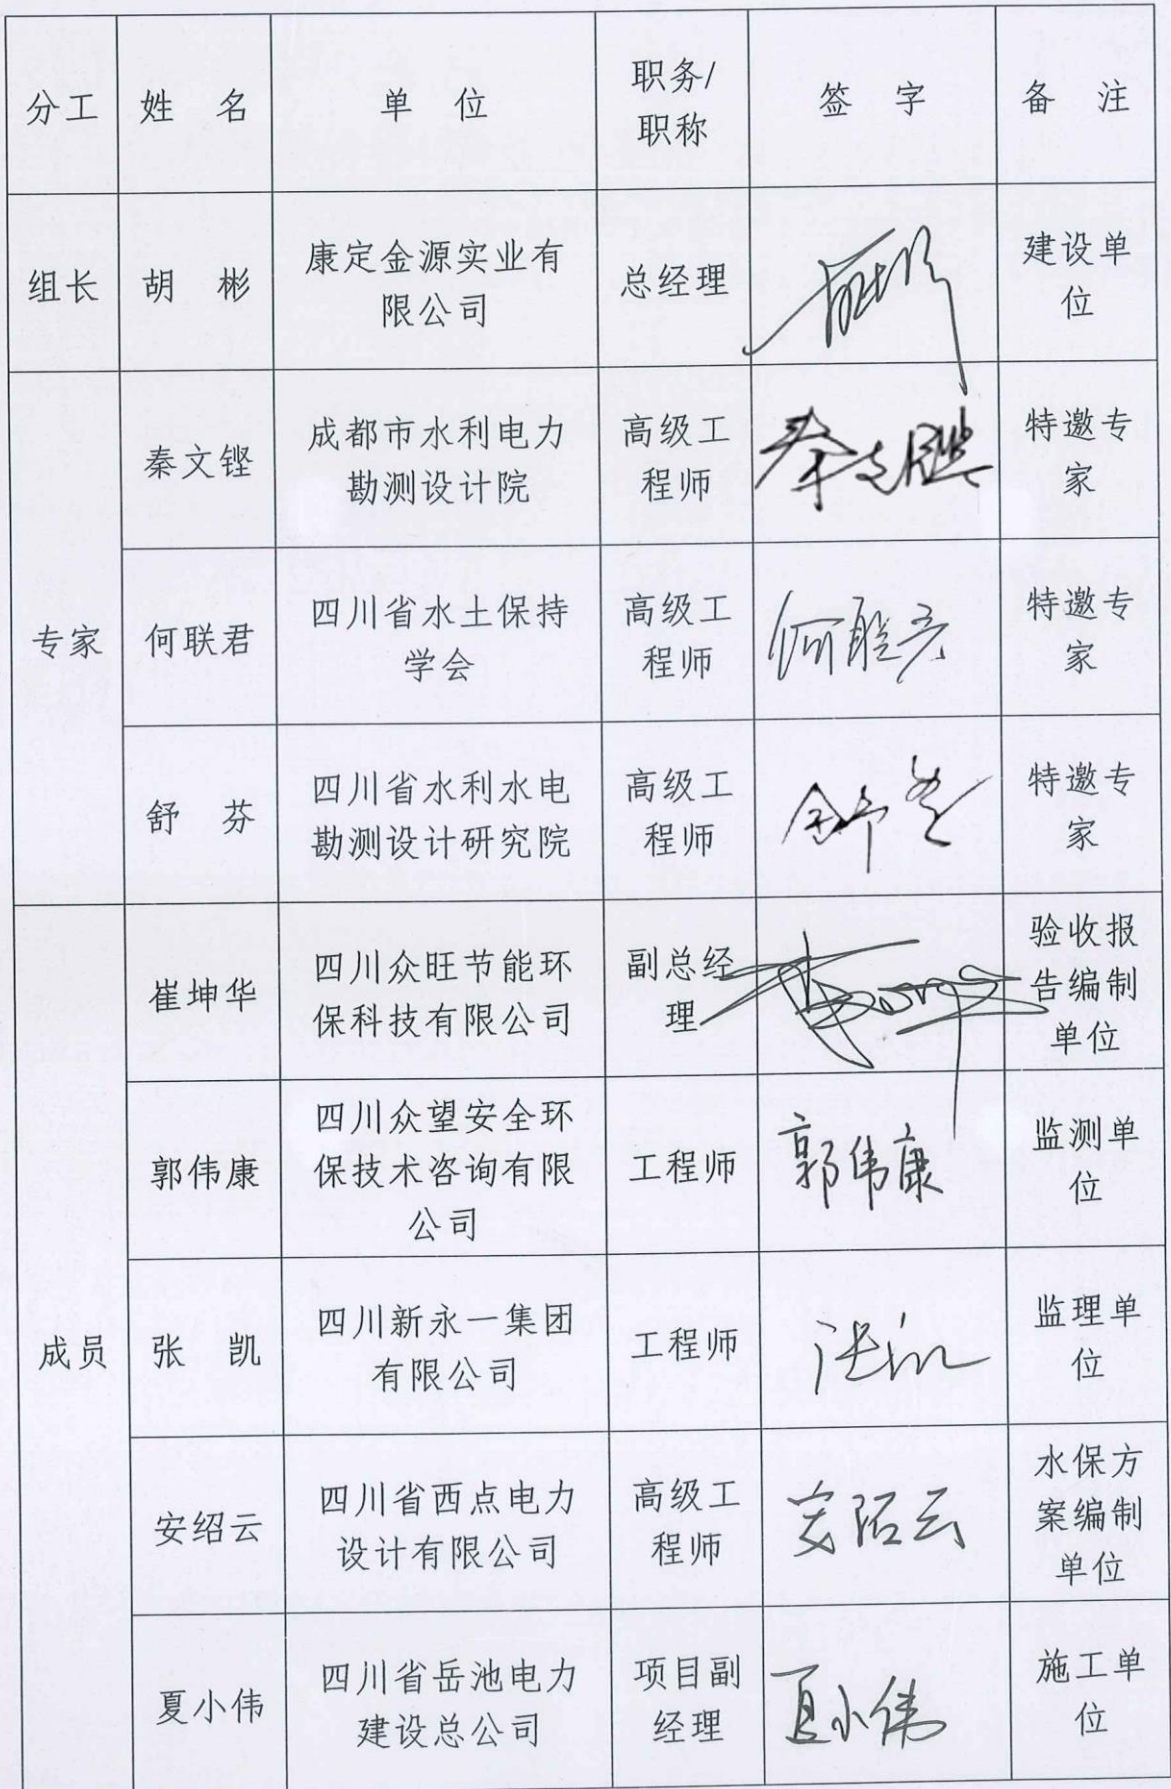 分工 姓 名 单 位 职务/职称 签 字 备 注
组长 胡 彬 康定金源实业有限公司 总经理 建设单位
专家 秦文铿 成都市水利电力勘测设计院 高级工程师 特邀专家
何联君 四川省水土保持学会 高级工程师 何联君 特邀专家
舒 芬 四川省水利水电勘测设计研究院 高级工程师 舒芬 特邀专家
成员 崔坤华 四川众旺节能环保科技有限公司 副总经理 验收报告编制单位
郭伟康 四川众望安全环保技术咨询有限公司 工程师 郭伟康 监测单位
张 凯 四川新永一集团有限公司 工程师 张凯 监理单位
安绍云 四川省西点电力设计有限公司 高级工程师 安绍云 水保方案编制单位
夏小伟 四川省岳池电力建设总公司 项目副经理 夏小伟 施工单位